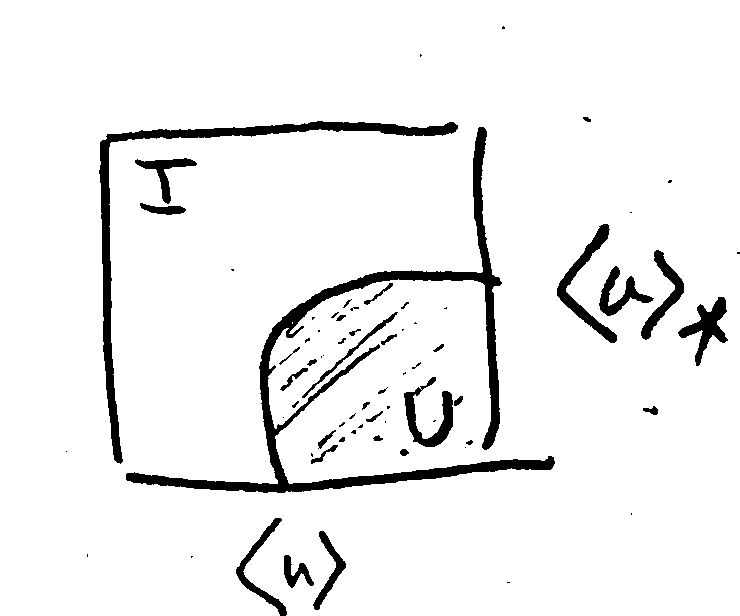 I
⟨u⟩*
U
⟨u⟩